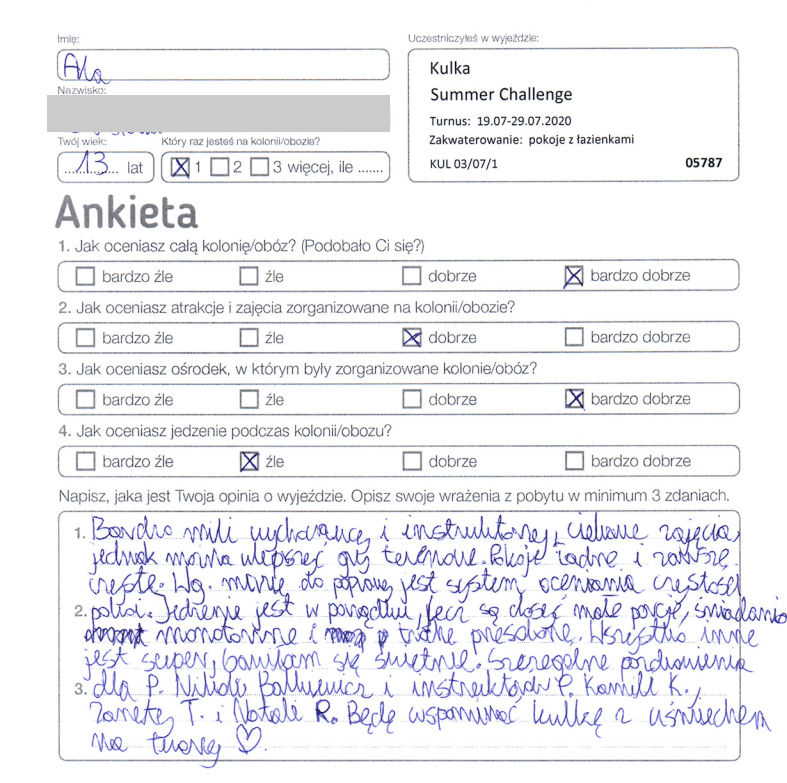 Imię:
Ala
Uczestniczyłeś w wyjeździe:
Kulka
Summer Challenge
Turnus: 19.07-29.07.2020
Zakwaterowanie: pokoje z łazienkami
KUL 03/07/1 05787
Nazwisko:
Twój wiek:
13 lat
Który raz jesteś na kolonii/obozie?
1 2 3 więcej, ile .......
Ankieta
1. Jak oceniasz całą kolonię/obóz? (Podobało Ci się?)
bardzo źle źle dobrze bardzo dobrze
2. Jak oceniasz atrakcje i zajęcia zorganizowane na kolonii/obozie?
bardzo źle źle dobrze bardzo dobrze
3. Jak oceniasz ośrodek, w którym były zorganizowane kolonie/obóz?
bardzo źle źle dobrze bardzo dobrze
4. Jak oceniasz jedzenie podczas kolonii/obozu?
bardzo źle źle dobrze bardzo dobrze
Napisz, jaka jest Twoja opinia o wyjeździe. Opisz swoje wrażenia z pobytu w minimum 3 zdaniach.
1. Bardzo mili wychowawcy i instruktorzy, ciekawe zajęcia,
jednak można ulepszyć gry terenowe. Pokoje ładne i zawsze
czyste. Wg. mnie do poprawy jest system oceniania czystości
2. pokoi. Jedzenie jest w porządku, lecz są dosyć małe porcje, śniadania
monotonne i trochę przesolone. Wszystko inne
jest super, bawiłam się świetnie. Szczególne pozdrowienia
3. dla P. Nikoli i instruktorów P. Kamili K.,
Żanety T. i Natalii R. Będę wspominać kulkę z uśmiechem
na twarzy ♡.